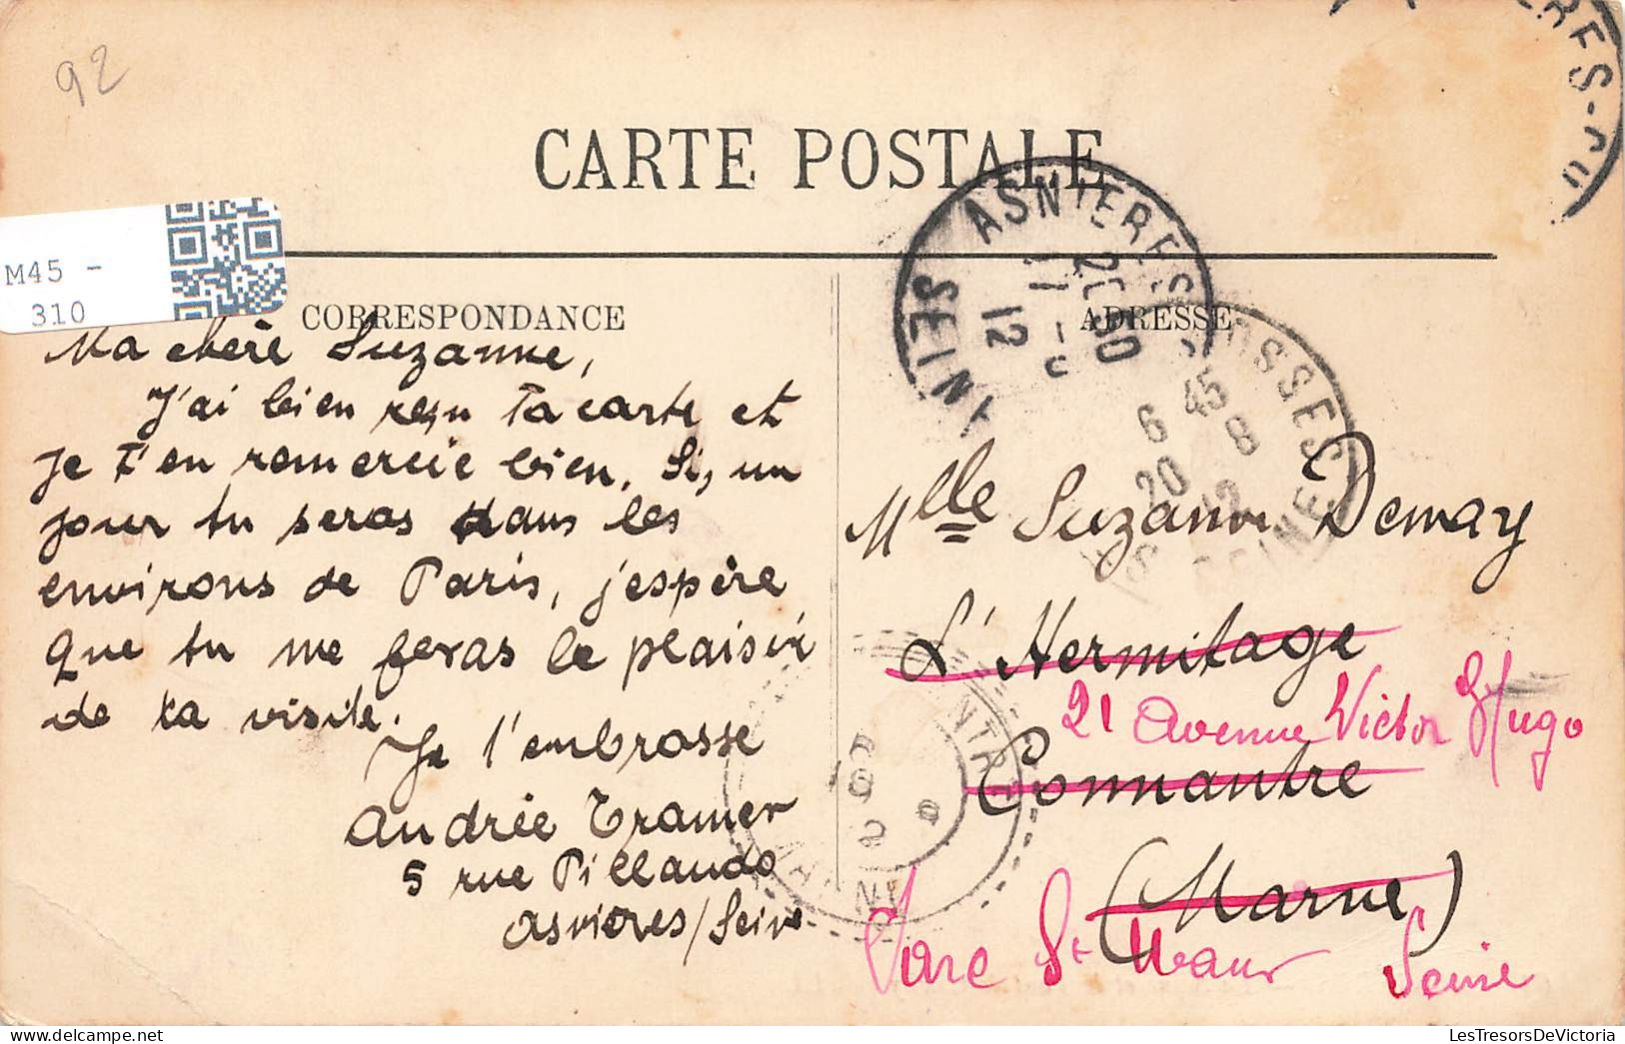 92
CARTE POSTALE
M45 -
310
CORRESPONDANCE
Ma chère Suzanne,
J'ai bien reçu ta carte et
je t'en remercie bien. Si, un
jour tu seras dans les
environs de Paris, j'espère
que tu me feras le plaisir
de ta visite.
Je t'embrasse
Andrée Tramer
5 rue Pillaudo
Asnières/Seine
ADRESSE
ASNIERES
20 50
12
OSSES
6 45
20 8
12
SEINE
Mlle Suzanne Demay
L'Hermitage
21 Avenue Victor Hugo
Connantre
(Marne)
Parc St Maur Seine
LesTresorsDeVictoria